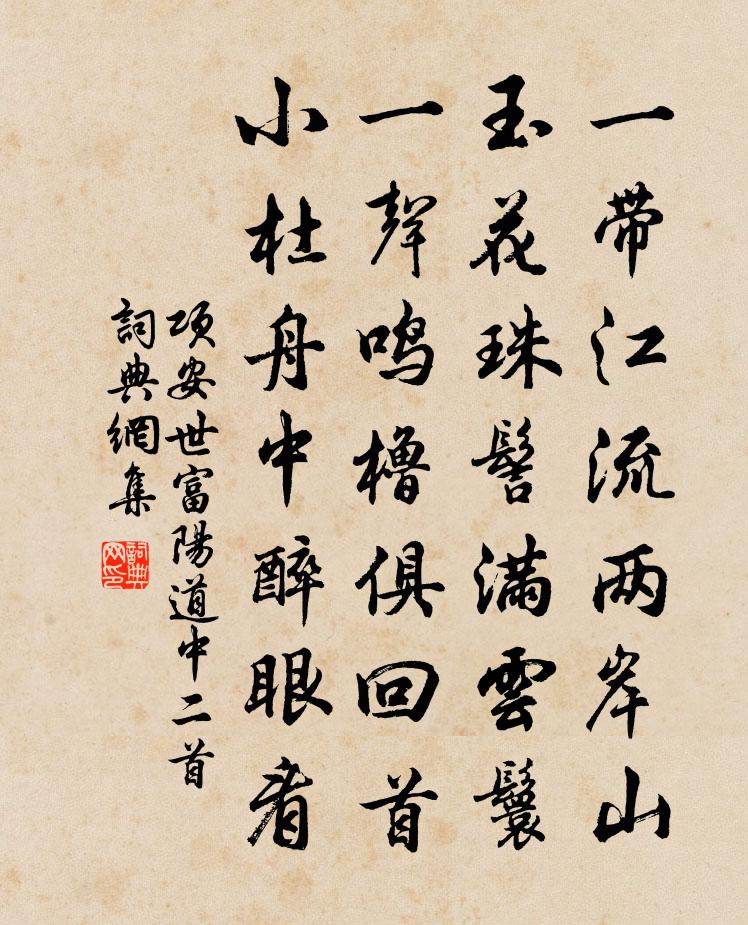 一帶江流两岸山
玉花珠髻滿雲鬟
一聲鳴櫓俱回首
小杜舟中醉眼看
項安世富陽道中二首
詞典網集
詞典
网印